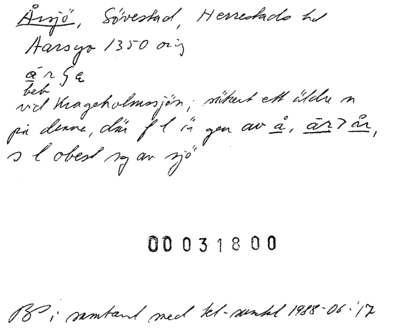 Årsjö, Sövestad, Herrestads hd
Aarsyo 1350 orig
år§a
beb
vid Krageholmssjön; säkert ett äldre n
på denne, där f l är gen av å, ār > år,
s l obest sg av sjö
00 031800
i samband med tel-samtal 1988-06-17